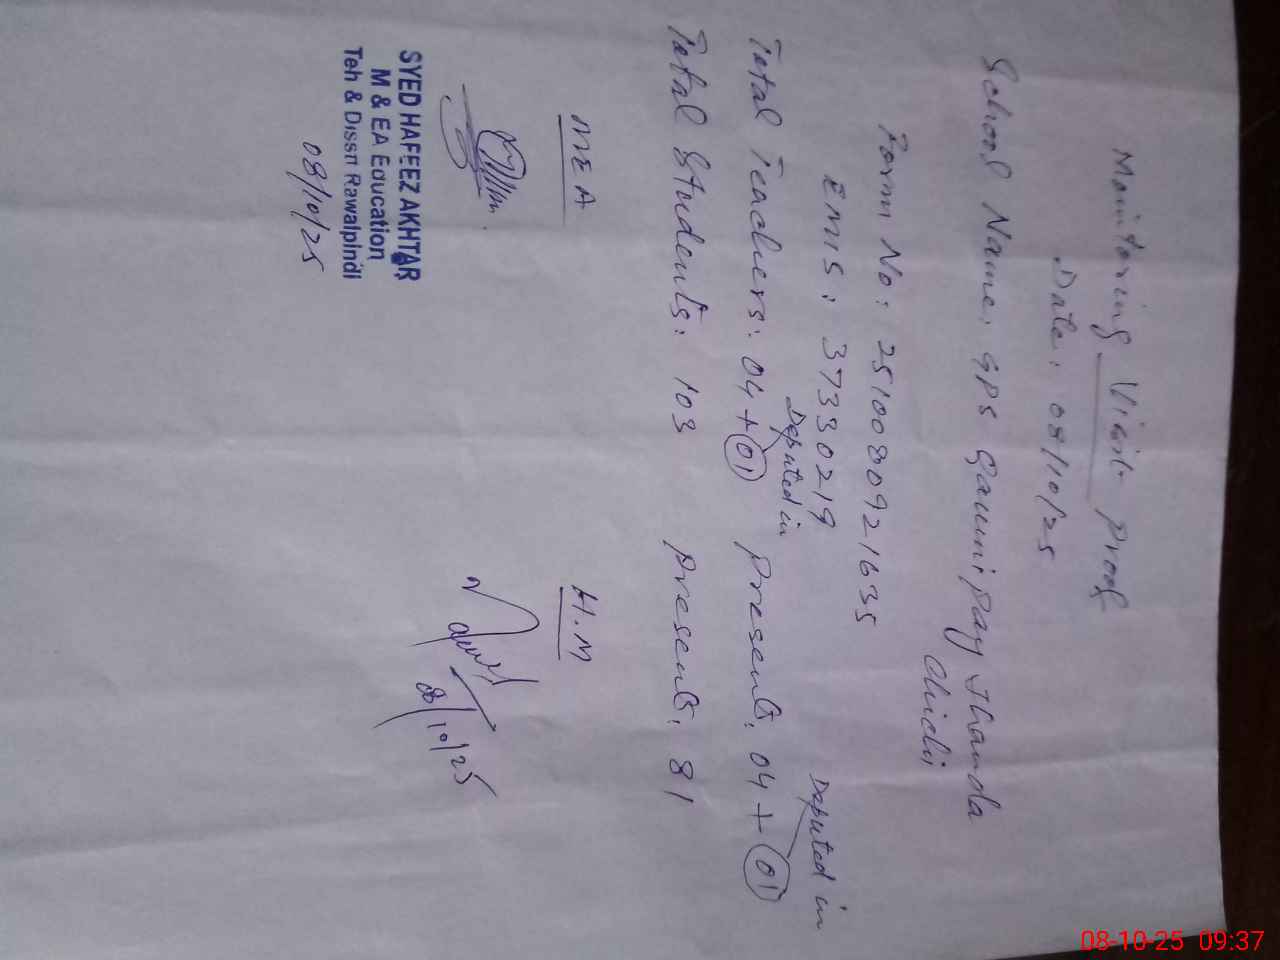 Monitoring Visit Proof
Date: 08/10/25
School Name: GPS Gauni Pay Jhanda
Chichi
Form No: 2510080921635
EMIS: 37330219
Deputed in
Deputed in
Total Teachers: 04 + 01 Present: 04 + 01
Total Students: 103 Present: 81
MEA
H.M
08/10/25
SYED HAFEEZ AKHTAR
M & EA Education
Teh & Dissti Rawalpindi
08/10/25
08-10-25 09:37